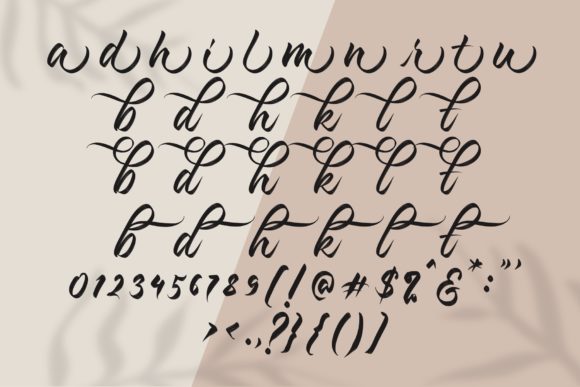 a d h i l m n r t u
b d h k l t
b d h k l t
b d h k l t
0 1 2 3 4 5 6 7 8 9 [ ! @ # $ % ^ & * : " '
> < . , ? } { ( ) ]